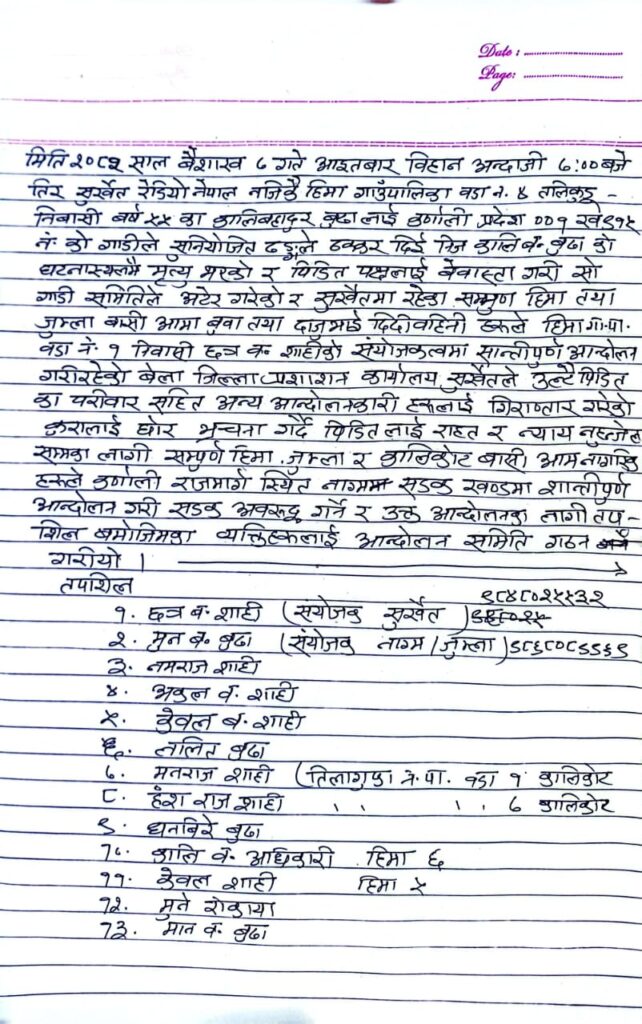 Date :
Page:
मिति २०८२ साल बैशाख ७ गते आइतबार विहान अन्दाजी ७:०० बजे
तिर सुर्खेत रेडियो नेपाल नजिकै हिमा गाउँपालिका वडा नं. ४ तलिकुडु -
निवासी बर्ष ५५ का कालिबहादुर बुढा लाई कर्णाली प्रदेश ००१
नं. को गाडीले सुनियोजित ढङ्गले ठक्कर दिई निज कालि ब. बुढा को
घटनास्थलमै मृत्यु भएको र पिडित पक्षलाई वेवास्ता गरी सो
गाडी समितिले अटेर गरेको र सुर्खेतमा रहेका सम्पुण हिमा तथा
जुम्ला बासी आमा बुवा तथा दाजुभाई दिदीवहिनी हरूले हिमा गा.पा.
वडा नं. १ निवासी छत्र ब. शाहीको संयोजकत्वमा सान्तीपुर्ण आन्दोलन
गरीरहेको बेला जिल्ला प्रशाशन कार्यालय सुर्खेतले उल्टै पिडित
का परीवार सहित अन्य आन्दोलनकारी हरूलाई गिराप्तार गरेको
कुरालाई घोर भर्त्सना गर्दै पिडित लाई राहत र न्याय नहुन्जेल
सम्मका लागी सम्पुर्ण हिमा, जुम्ला र कालिकोट बासी आम नागरिक
हरूले कर्णाली राजमार्ग स्थित नाग्ममा सडक खण्डमा शान्तीपुर्ण
आन्दोलन गरी सडक अवरूद्ध गर्ने र उक्त आन्दोलनका लागी तप -
शिल बमोजिमका व्यक्तिहरूलाई आन्दोलन समिति गठन
गरीयो ।
तपशिल
९८४८०२५५३२
१. छत्र ब. शाही (संयोजक सुर्खेत)
२. मुन ब. बुढा (संयोजक नाग्म / जुम्ला) ९८६८०८९९६९
३. नमराज शाही
४. अकल ब. शाही
५. केवल ब. शाही
६. ललित बुढा
७. मनराज शाही (तिलागुफा न.पा. वडा १ कालिकोट
८. हंश राज शाही ,, ,, ७ कालिकोट
९. धनबिरे बुढा
१०. कालि ब. अधिकारी हिमा ६
११. केवल शाही हिमा ५
१२. मुने रोकाया
१३. मान ब. बुढा